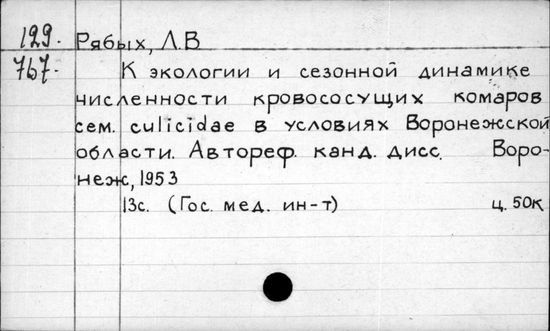 129. Рябых, Л.В
767. К экологии и сезонной динамике
численности кровососущих комаров
сем. culicidae в условиях Воронежской
области. Автореф. канд. дисс. Воро-
неж, 1953
13с. (Гос. мед. ин-т) ц. 50к